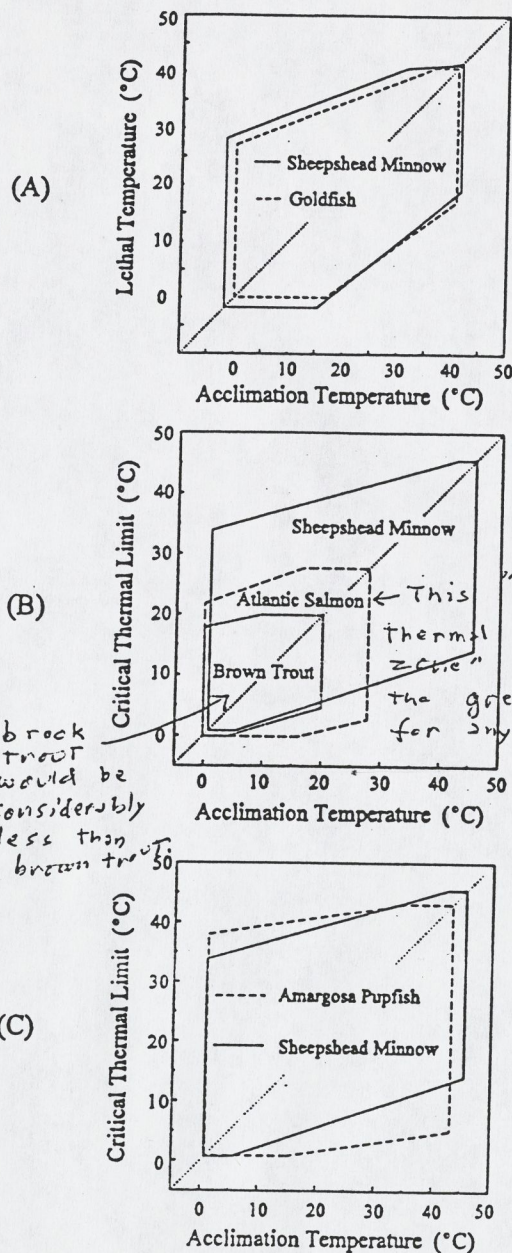 (A)
Lethal Temperature (°C)
50
40
30
20
10
0
Sheepshead Minnow
Goldfish
0 10 20 30 40 50
Acclimation Temperature (°C)
(B)
Critical Thermal Limit (°C)
50
40
30
20
10
0
Sheepshead Minnow
Atlantic Salmon
Brown Trout
This
thermal
the
for any
brook
trout
would be
considerably
less than
brown trout.
0 10 20 30 40 50
Acclimation Temperature (°C)
(C)
Critical Thermal Limit (°C)
50
40
30
20
10
0
Amargosa Pupfish
Sheepshead Minnow
0 10 20 30 40 50
Acclimation Temperature (°C)